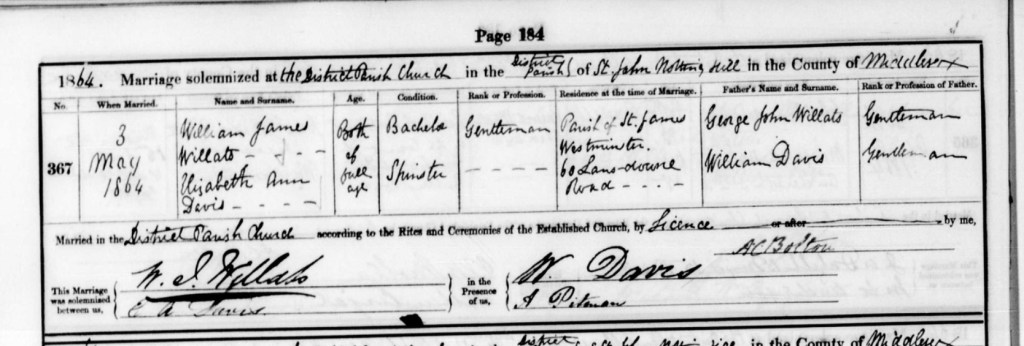 Page 184
1864. Marriage solemnized at the District Parish Church in the District Parish of St. John Notting Hill in the County of Middlesex
No. When Married. Name and Surname. Age. Condition. Rank or Profession. Residence at the time of Marriage. Father's Name and Surname. Rank or Profession of Father.
367 3 May 1864
William James Willats Both of full age Bachelor Gentleman Parish of St. James Westminster. George John Willats Gentleman
Elizabeth Ann Davis Spinster 60 Lansdowne Road William Davis Gentleman
Married in the District Parish Church according to the Rites and Ceremonies of the Established Church, by Licence or after by me,
A C Bolton
This Marriage was solemnized between us, W. J. Willats in the Presence of us, W. Davis
E A Davis A Pitman
District
in the County of Middlesex